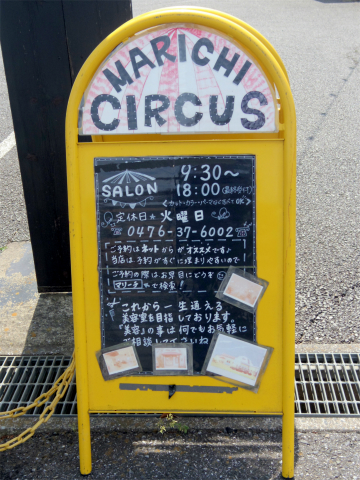 MARICHI
CIRCUS
SALON
9:30〜
18:00(最終受付)
<カット・カラー・パーマは 迄OK>
定休日★火曜日
☎0476-37-6002☎
ご予約はネットからがオススメです。
当店は予約がすぐに埋まり易いので
ご予約の際はお早目にどうぞ
マリーチ で検索!
これから一生通える
美容室を目指しております。
「美容」の事は何でもお気軽に
ご相談して 下さいね